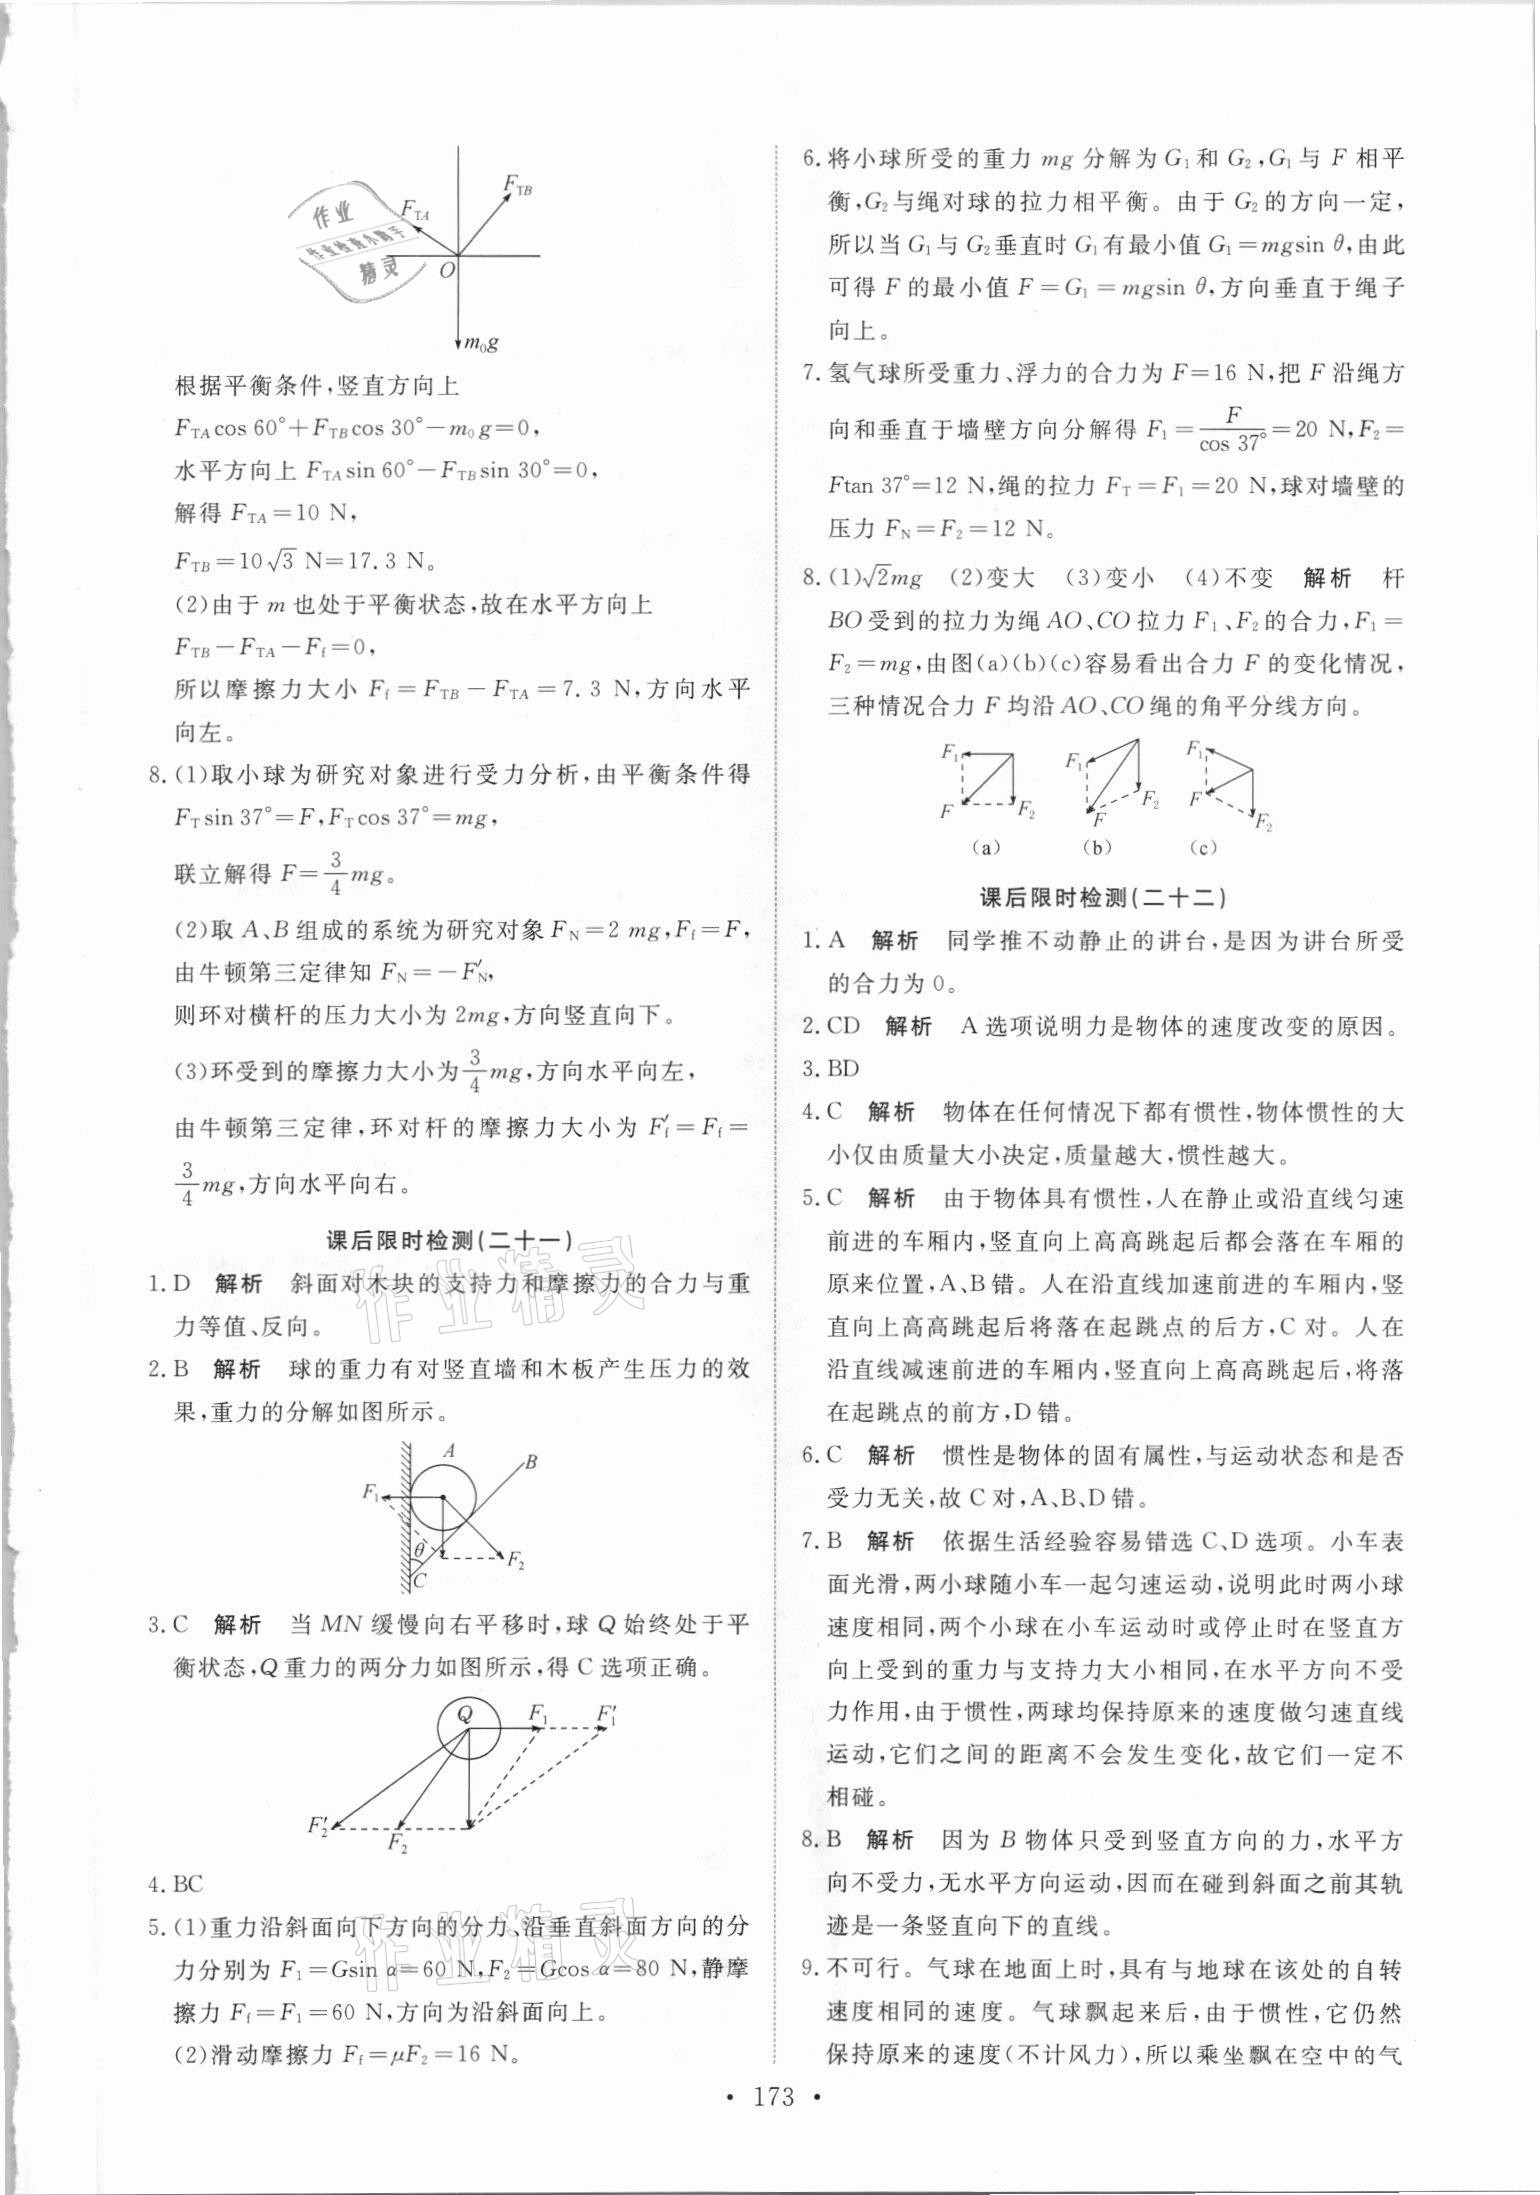 F_TB
F_TA
O
m₀g
作业
作业检查小助手
精灵
根据平衡条件,竖直方向上
F_TA cos 60°+F_TB cos 30°−m₀g=0,
水平方向上 F_TA sin 60°−F_TB sin 30°=0,
解得 F_TA=10 N,
F_TB=10√3 N=17.3 N。
(2)由于 m 也处于平衡状态,故在水平方向上
F_TB−F_TA−F_f=0,
所以摩擦力大小 F_f=F_TB−F_TA=7.3 N,方向水平
向左。
8.(1)取小球为研究对象进行受力分析,由平衡条件得
F_T sin 37°=F,F_T cos 37°=mg,
联立解得 F=3/4 mg。
(2)取 A、B 组成的系统为研究对象 F_N=2 mg,F_f=F,
由牛顿第三定律知 F_N=−F′_N,
则环对横杆的压力大小为 2mg,方向竖直向下。
(3)环受到的摩擦力大小为 3/4 mg,方向水平向左,
由牛顿第三定律,环对杆的摩擦力大小为 F′_f=F_f=
3/4 mg,方向水平向右。
课后限时检测(二十一)
1. D 解析 斜面对木块的支持力和摩擦力的合力与重
力等值、反向。
2. B 解析 球的重力有对竖直墙和木板产生压力的效
果,重力的分解如图所示。
A
B
F₁
θ
F₂
C
3. C 解析 当 MN 缓慢向右平移时,球 Q 始终处于平
衡状态,Q 重力的两分力如图所示,得 C 选项正确。
Q F₁ F′₁
F′₂
F₂
4. BC
5.(1)重力沿斜面向下方向的分力、沿垂直斜面方向的分
力分别为 F₁=Gsin α=60 N,F₂=Gcos α=80 N,静摩
擦力 F_f=F₁=60 N,方向为沿斜面向上。
(2)滑动摩擦力 F_f=μF₂=16 N。
作业精灵
作业精灵
6. 将小球所受的重力 mg 分解为 G₁ 和 G₂,G₁ 与 F 相平
衡,G₂ 与绳对球的拉力相平衡。由于 G₂ 的方向一定,
所以当 G₁ 与 G₂ 垂直时 G₁ 有最小值 G₁=mgsin θ,由此
可得 F 的最小值 F=G₁=mgsin θ,方向垂直于绳子
向上。
7. 氢气球所受重力、浮力的合力为 F=16 N,把 F 沿绳方
向和垂直于墙壁方向分解得 F₁=F/cos 37°=20 N,F₂=
Ftan 37°=12 N,绳的拉力 F_T=F₁=20 N,球对墙壁的
压力 F_N=F₂=12 N。
8.(1)√2mg (2)变大 (3)变小 (4)不变 解析 杆
BO 受到的拉力为绳 AO、CO 拉力 F₁、F₂ 的合力,F₁=
F₂=mg,由图(a)(b)(c)容易看出合力 F 的变化情况,
三种情况合力 F 均沿 AO、CO 绳的角平分线方向。
F₁ F₁ F₁
F F₂ F F₂ F F₂
(a) (b) (c)
课后限时检测(二十二)
1. A 解析 同学推不动静止的讲台,是因为讲台所受
的合力为 0。
2. CD 解析 A 选项说明力是物体的速度改变的原因。
3. BD
4. C 解析 物体在任何情况下都有惯性,物体惯性的大
小仅由质量大小决定,质量越大,惯性越大。
5. C 解析 由于物体具有惯性,人在静止或沿直线匀速
前进的车厢内,竖直向上高高跳起后都会落在车厢的
原来位置,A、B错。人在沿直线加速前进的车厢内,竖
直向上高高跳起后将落在起跳点的后方,C 对。人在
沿直线减速前进的车厢内,竖直向上高高跳起后,将落
在起跳点的前方,D错。
6. C 解析 惯性是物体的固有属性,与运动状态和是否
受力无关,故 C 对,A、B、D 错。
7. B 解析 依据生活经验容易错选 C、D 选项。小车表
面光滑,两小球随小车一起匀速运动,说明此时两小球
速度相同,两个小球在小车运动时或停止时在竖直方
向上受到的重力与支持力大小相同,在水平方向不受
力作用,由于惯性,两球均保持原来的速度做匀速直线
运动,它们之间的距离不会发生变化,故它们一定不
相碰。
8. B 解析 因为 B 物体只受到竖直方向的力,水平方
向不受力,无水平方向运动,因而在碰到斜面之前其轨
迹是一条竖直向下的直线。
9. 不可行。气球在地面上时,具有与地球在该处的自转
速度相同的速度。气球飘起来后,由于惯性,它仍然
保持原来的速度(不计风力),所以乘坐飘在空中的气
• 173 •